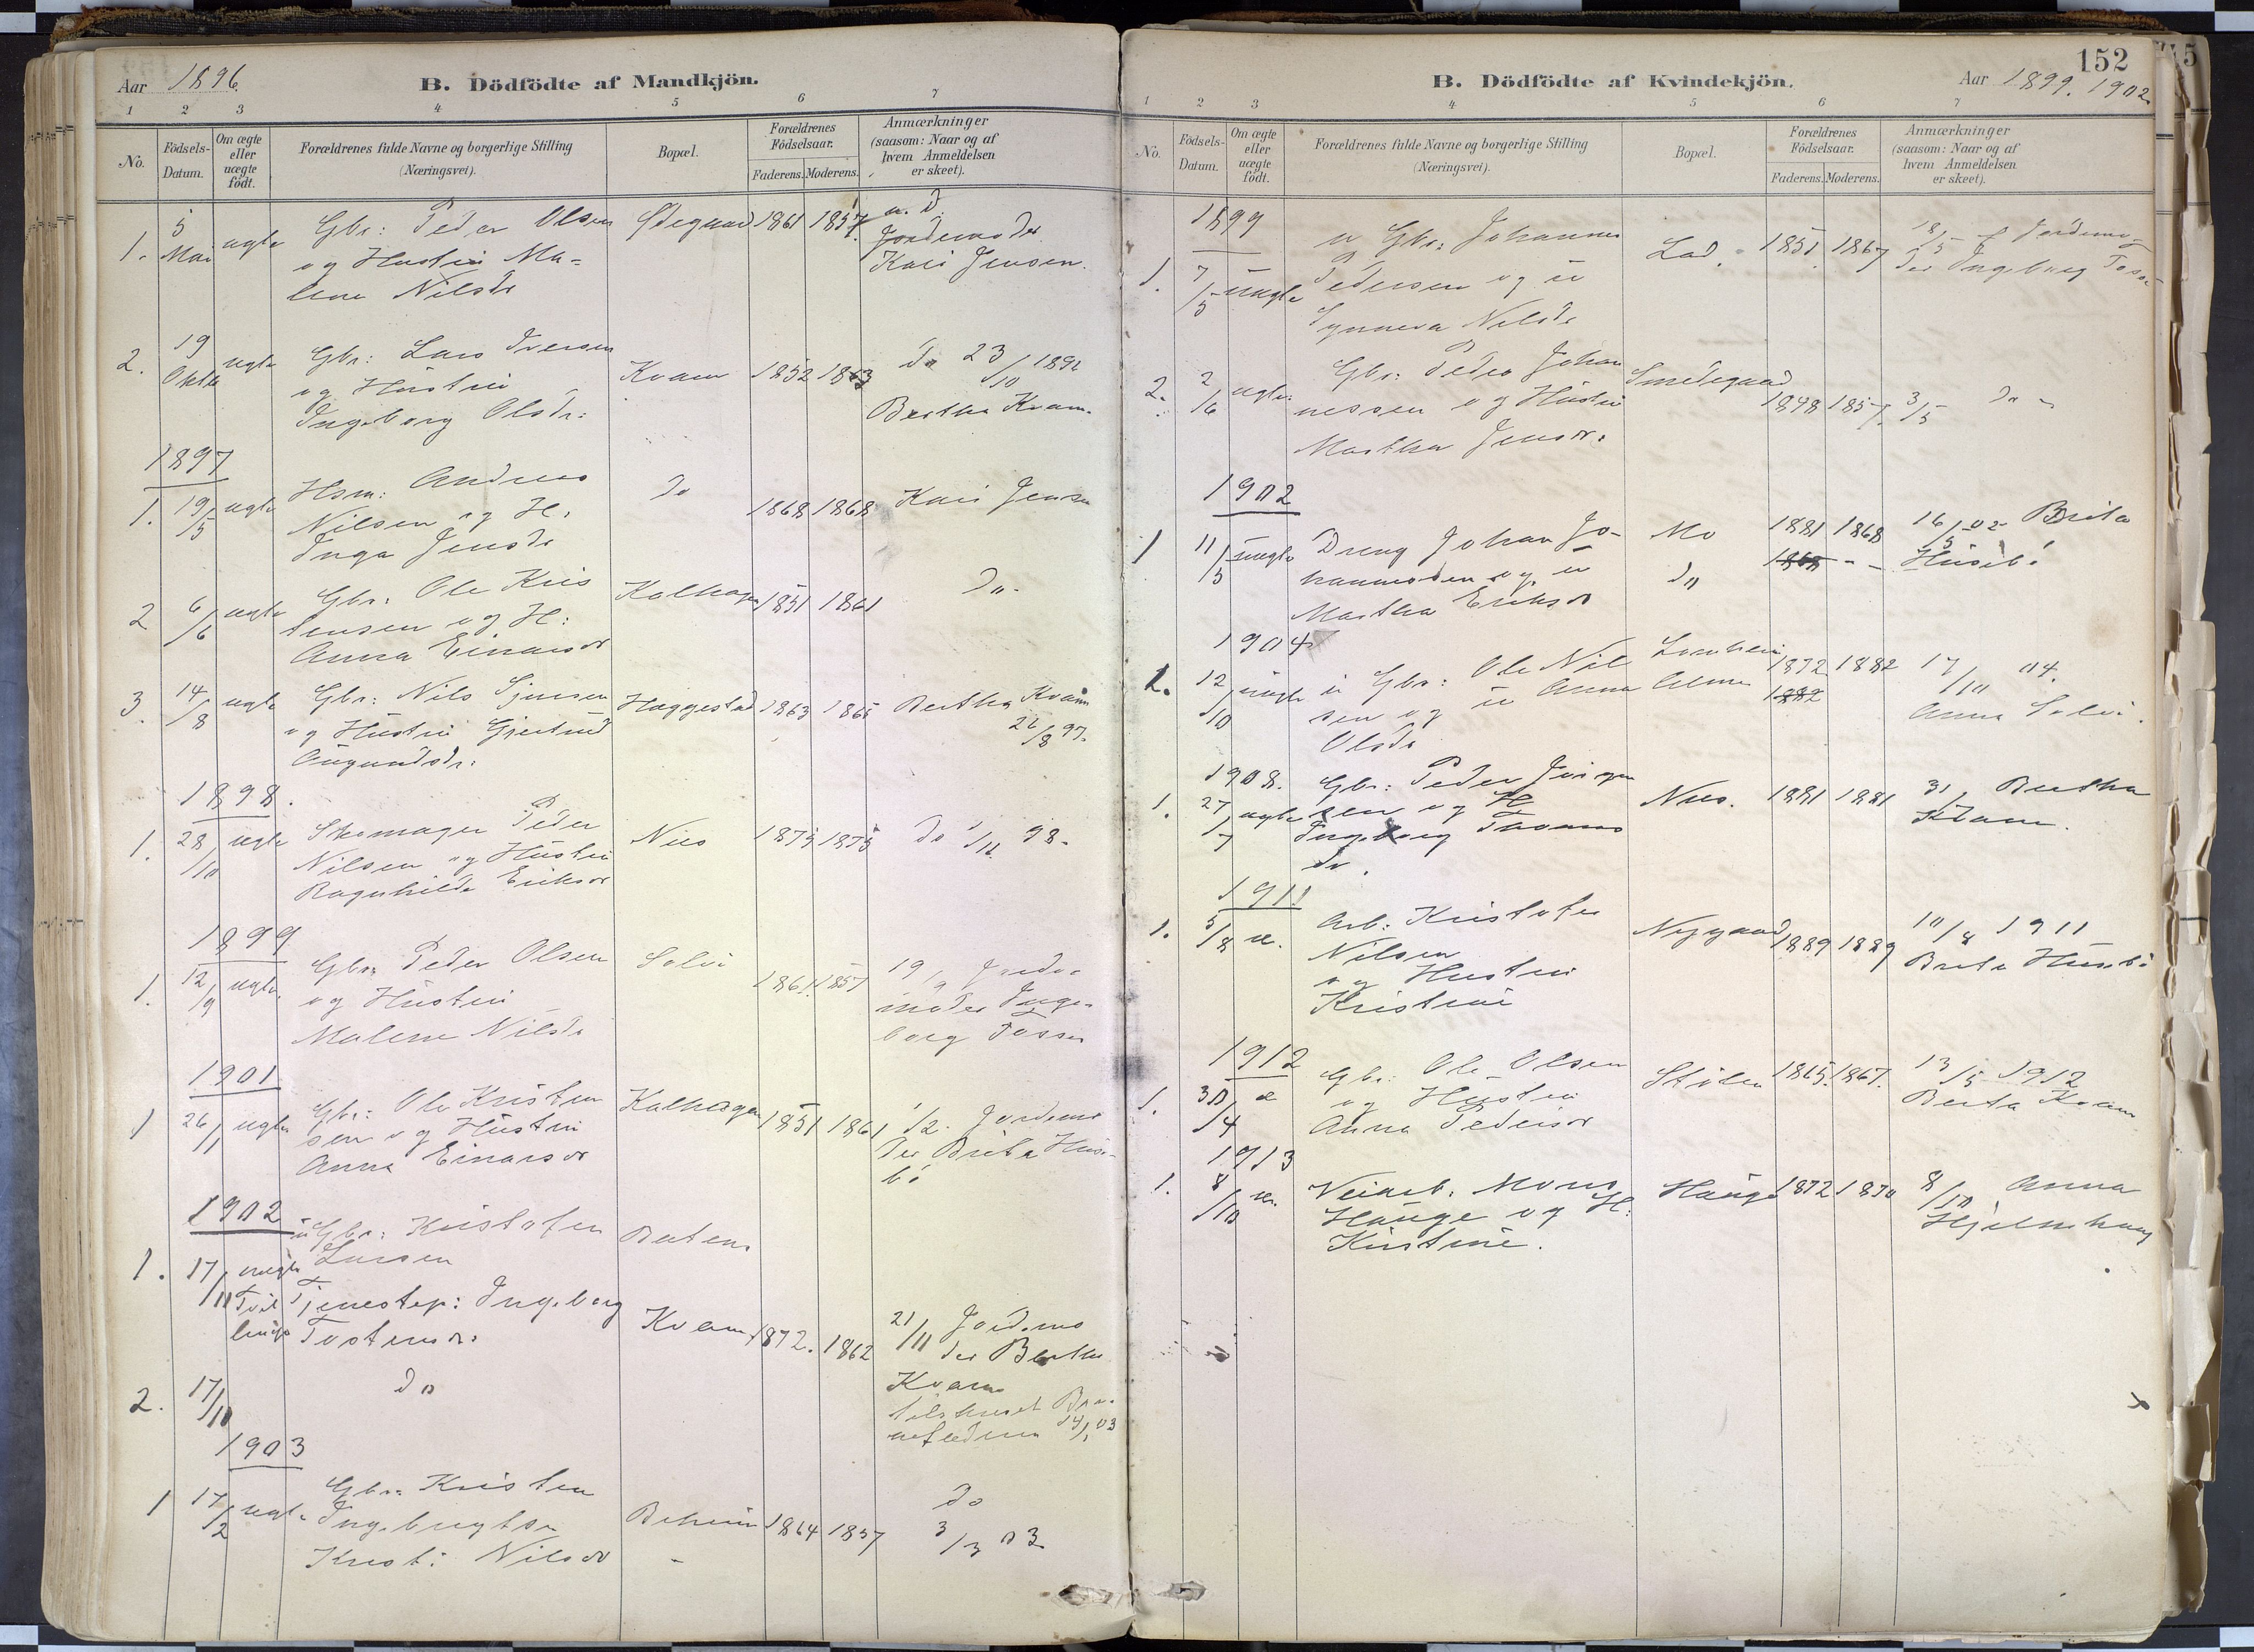 Aar 1896.
B. Dödfödte af Mandkjön.
1 2 3 4 5 6 7
No.
Födsels-
Datum.
Om ægte
eller
uægte
födt.
Forældrenes fulde Navne og borgerlige Stilling
(Næringsvei).
Bopæl.
Forældrenes
Födselsaar.
Faderens. Moderens.
Anmærkninger
(saasom: Naar og af
hvem Anmeldelsen
er skeet).
1. 5 Mai ægte Gbr: Peder Olsen Ødegaard 1861 1857
og Hustru Ma-
lene Nilsdr
Jordemoder
Kari Jensen.
2. 19 Oktbr ægte Gbr: Lars Iversen Kvam 1852 1863 do 23/10 1896
og Hustru
Ingeborg Olsdr: Bertha Kvam.
1897
1. 19/5 ægte Hsm: Andreas do 1868 1868 Kari Jensen
Nilsen og H:
Inga Jensdr
2 6/6 ægte Gbr: Ole Kris Kalhagen 1851 1861 do.
tensen og H:
Anna Einarsdr
3. 14/8 ægte Gbr: Nils Haggestad 1863 1865 Bertha Kvam
og Hustru Gjertrud 26/8 97.
Augundsdr:
1898.
1. 28/10 ægte Skomager Peder Næs 1875 1875 do 1/11 98.
Nilsen og Hustru
Ragnhilda Eriksdr
1899
1. 12/9 ægte. Gbr: Peder Olsen Solvi 1861 1857 19/9 Jorde-
og Hustru moder Inge-
Malene Nilsdr borg Fosse
1901
1 26/1 ægte Gbr: Ole Kristen Kalhagen 1851 1861 1/2. Jordemo
sen og Hustru der Brita Huse-
Anna Einarsdr bø
1902
1. 17/11 uægte Gbr: Kristofer
Larsen
Tvil Tjenestep: Ingeborg Kvam 1872. 1862 21/11 Jordemo
linge Tostensdr: der Bertha
Kvam
2. 17/11 do
1903
1 17/2 ægte Gbr: Kristen 1864 1857 do
Ingebrigtsen 3/3 03
Kristi Nilsdr
152
B. Dödfödte af Kvindekjön.
Aar 1899. 1902.
1 2 3 4 5 6 7
No.
Födsels-
Datum.
Om ægte
eller
uægte
födt.
Forældrenes fulde Navne og borgerlige Stilling
(Næringsvei).
Bopæl.
Forældrenes
Födselsaar.
Faderens. Moderens.
Anmærkninger
(saasom: Naar og af
hvem Anmeldelsen
er skeet).
1899
1. 7/5 uægte u Gbr: Johannes Lad. 1851 1867 18/5 af Jordemo-
Pedersen og u der Ingeborg Fosse
Synneva Nilsdr
2. 2/6 ægte: Gbr: Peder Johan Smedegaard 1848 1857. 3/5 do
nessen og Hustru
Martha Jensdr:
1902
1 11/5 uægte Dreng Johan Jo- Mo 1881 1868 16/5 02 Brita
hannesen og u do 1868 Husebø
Martha Eriksdr
1904
1. 12/10 uægte u Gbr: Ole Nil 1872 1882 17/10 04.
sen og u Anna 1882
Olsdr Anna Solvi.
1908.
1. 27/7 ægte Gbr: Peder Jørgen Næs. 1881 1881 31/ Bertha
sen og H Kvam.
Ingeborg Thomas
dr.
1911
1. 5/8 æ. Arb: Kristofer Nygaard 1889 1889 10/8 1911
Nilsen Brita Husebø
og Hustru
Kristine
1912
1. 30/4 æ Gbr: Ole Olsen Stølen 1865. 1867. 13/5 1912
og Hustru Berta Kvam
Anna Pedersdr
1913
1. 8/10 æ. Veiarb: Mons Hauge 1872 1870 8/10 Anna
Hauge og H: Hjelmhaug
Kirstine.